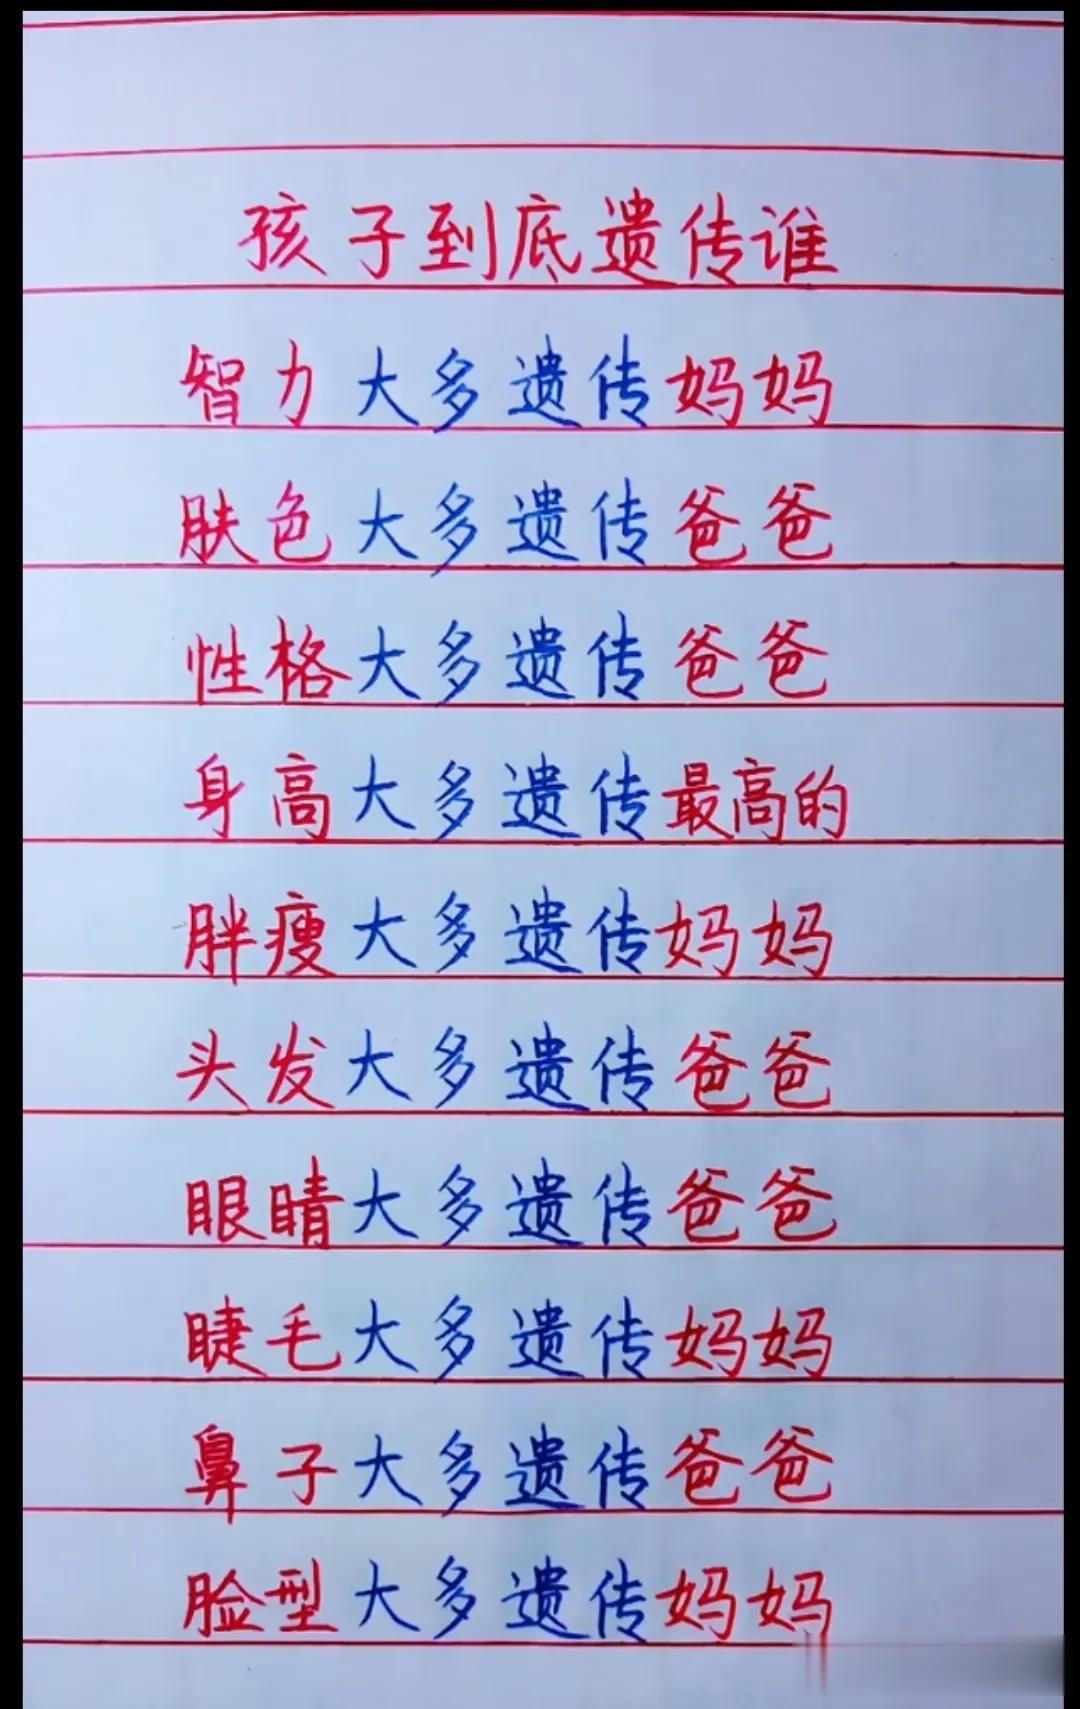 孩子到底遗传谁
智力大多遗传妈妈
肤色大多遗传爸爸
性格大多遗传爸爸
身高大多遗传最高的
胖瘦大多遗传妈妈
头发大多遗传爸爸
眼睛大多遗传爸爸
睫毛大多遗传妈妈
鼻子大多遗传爸爸
脸型大多遗传妈妈